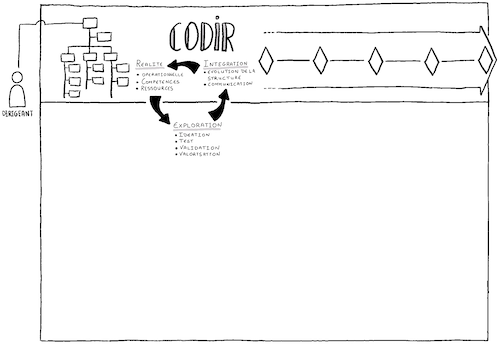 CODIR
REALITE
• OPERATIONNELLE
• COMPETENCES
• RESSOURCES
INTEGRATION
• EVOLUTION DE LA
STRUCTURE
• COMMUNICATION
DIRIGEANT
EXPLORATION
• IDEATION
• TEST
• VALIDATION
• VALORISATION